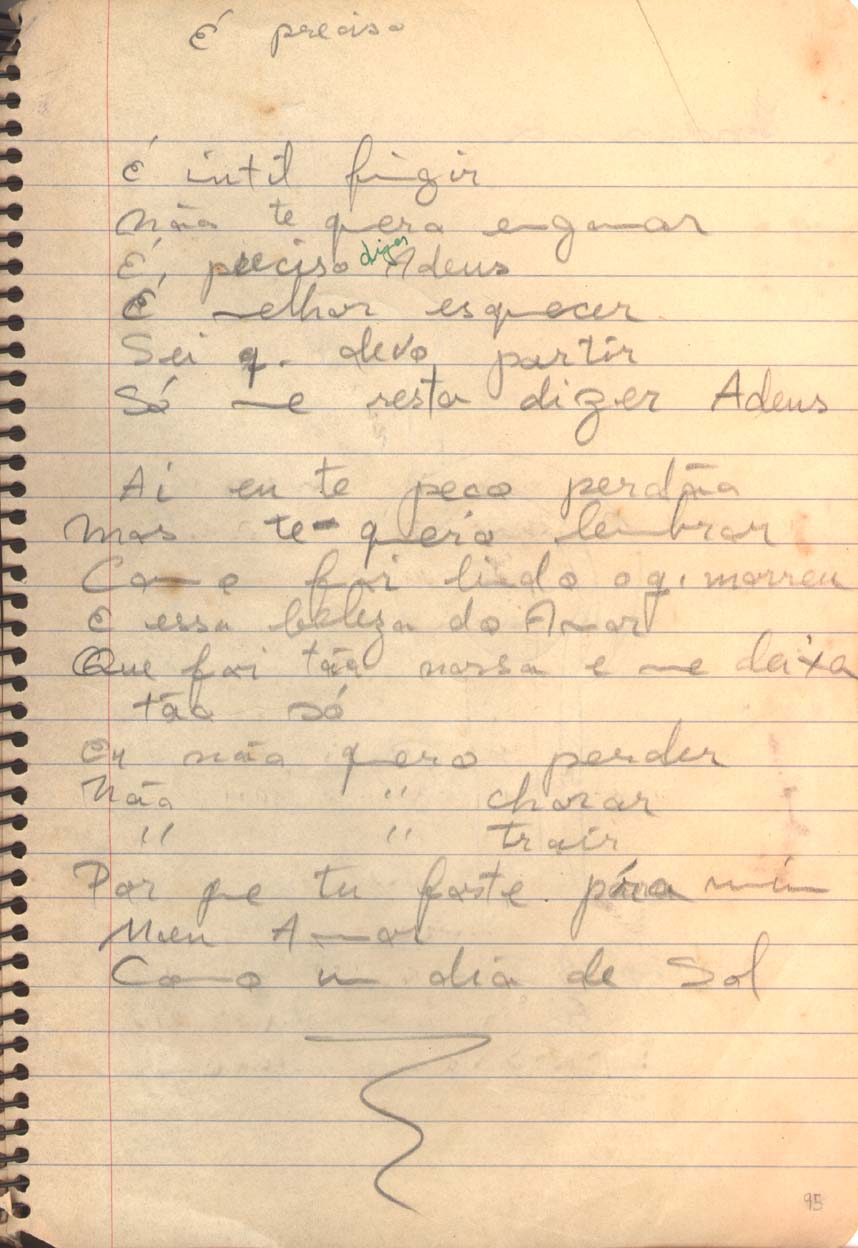 É preciso
É intil fingir
Não te quero enganar
É, preciso dizer Adeus
É melhor esquecer
Sei q. devo partir
Só me resta dizer Adeus
Ai eu te peco perdão
Mas te quero lembrar
Como foi lindo o q. morreu
E essa beleza do Amor
Que foi tão nossa e me deixa
tão só
Eu não quero perder
Não " chorar
" " trair
Por que tu foste para mim
Meu Amor
Como um dia de Sol
95